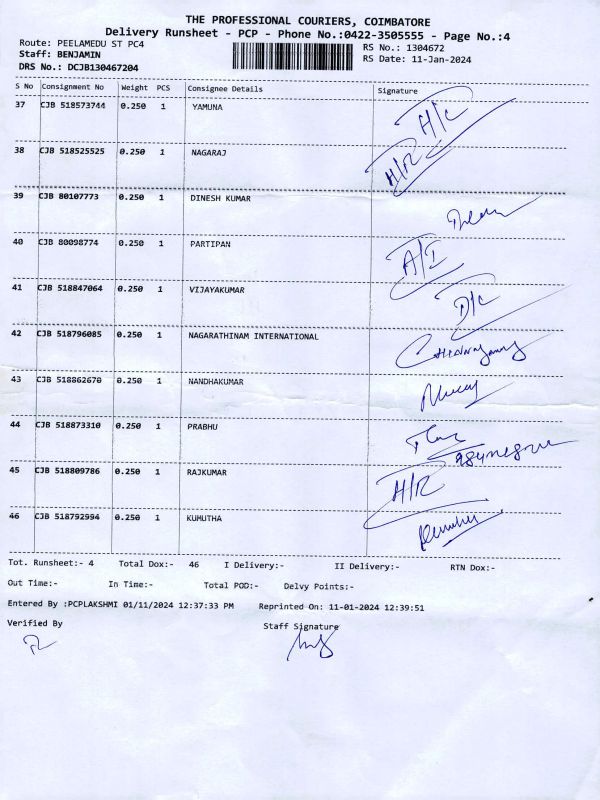 THE PROFESSIONAL COURIERS, COIMBATORE
Delivery Runsheet - PCP - Phone No.:0422-3505555 - Page No.:4
Route: PEELAMEDU ST PC4 RS No.: 1304672
Staff: BENJAMIN RS Date: 11-Jan-2024
DRS No.: DCJB130467204
S No Consignment No Weight PCS Consignee Details Signature
37 CJB 518573744 0.250 1 YAMUNA H/C
38 CJB 518525525 0.250 1 NAGARAJ H/R
39 CJB 80107773 0.250 1 DINESH KUMAR
40 CJB 80098774 0.250 1 PARTIPAN A/I
41 CJB 518847064 0.250 1 VIJAYAKUMAR D/C
42 CJB 518796085 0.250 1 NAGARATHINAM INTERNATIONAL
43 CJB 518862670 0.250 1 NANDHAKUMAR
44 CJB 518873310 0.250 1 PRABHU
45 CJB 518809786 0.250 1 RAJKUMAR H/R
46 CJB 518792994 0.250 1 KUMUTHA
Tot. Runsheet:- 4 Total Dox:- 46 I Delivery:- II Delivery:- RTN Dox:-
Out Time:- In Time:- Total POD:- Delvy Points:-
Entered By :PCPLAKSHMI 01/11/2024 12:37:33 PM Reprinted On: 11-01-2024 12:39:51
Verified By Staff Signature